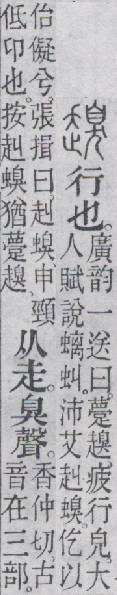 行也。廣韵一送曰。疲行皃。大人賦說螭虯。沛艾赳螑。仡以
佁儗兮。張揖曰。赳螑、申頸低卬也。按赳螑猶 从走。臭聲。香仲切。古音在三部。